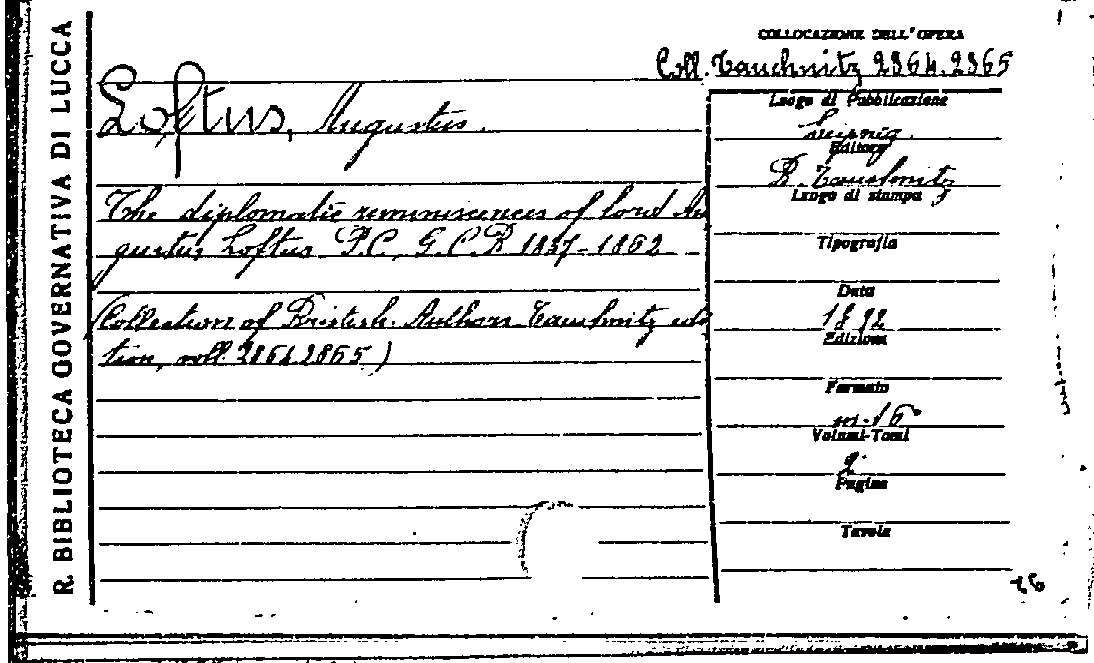 R. BIBLIOTECA GOVERNATIVA DI LUCCA
COLLOCAZIONE DELL'OPERA
Coll. Tauchnitz 2864.2865
Loftus, Augustus.
The diplomatic reminiscences of lord Au
gustus Loftus P.C., G.C.B 1837-1862
(Collection of British Authors Tauchnitz edi
tion, voll. 2864.2865)
Luogo di Pubblicazione
Leipzig.
Editore
B. Tauchnitz
Luogo di stampa
Tipografia
Data
1892
Edizione
Formato
in-16°
Volumi-Tomi
2.
Pagine
Tavole